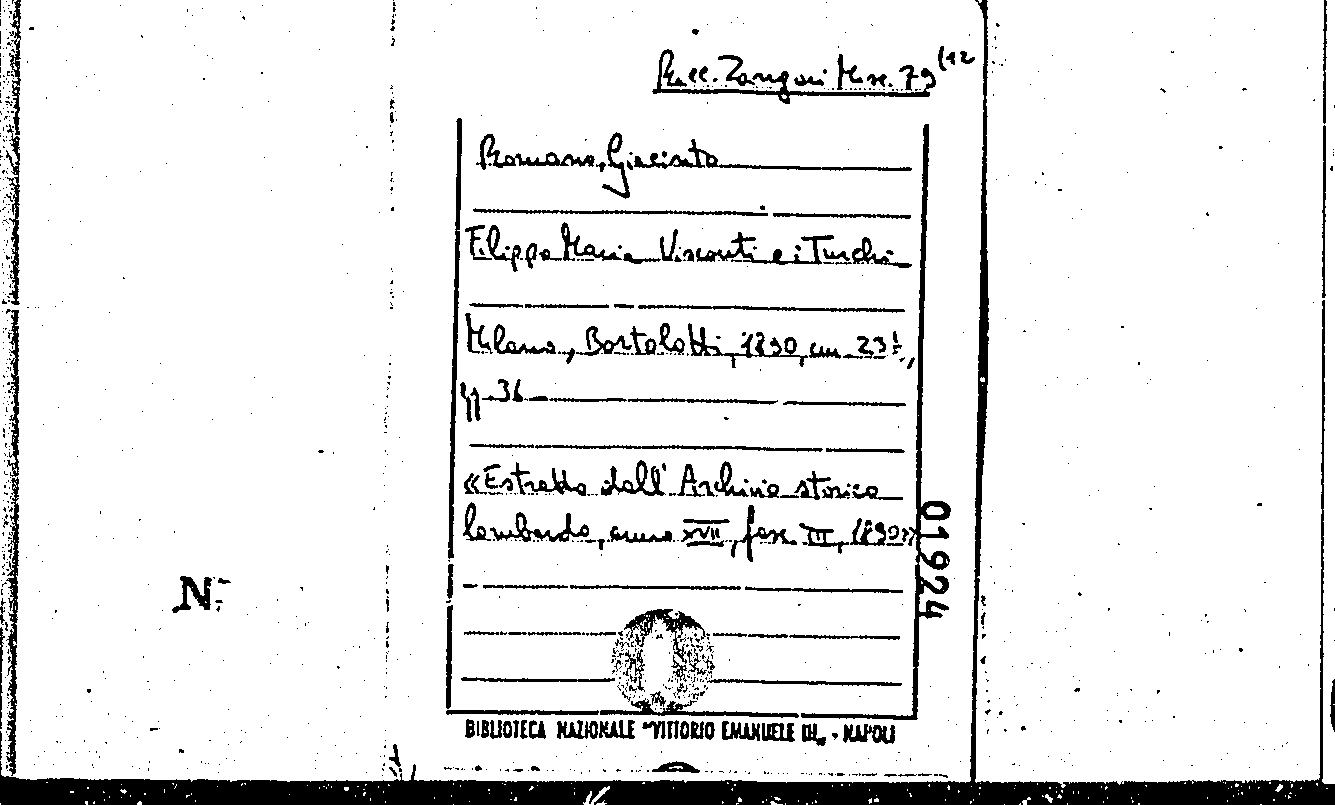 Racc. Zangari Misc. 79 (12
Romano, Giacinto
Filippo Maria Visconti e i Turchi
Milano, Bortolotti, 1890, cm 23½,
pp. 36
«Estratto dall'Archivio storico
lombardo, anno XVII, fasc. III, 1890»
01924
N.
BIBLIOTECA NAZIONALE "VITTORIO EMANUELE III„ - NAPOLI